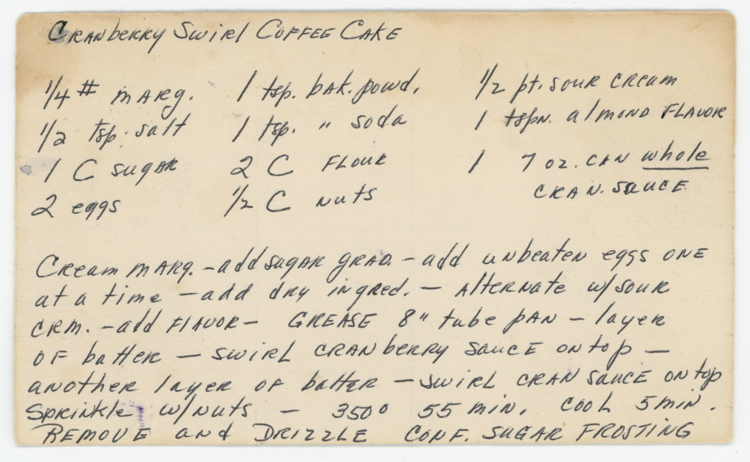 CRANberRy SwiRl COFFEE CAKE
1/4 # mARg. 1 tsp. bAk. powd. 1/2 pt. SOUR CREAM
1/2 tsp. salt 1 tsp. " soda 1 tspn. almond FLAVOR
1 C sugAR 2 C FLOUR 1 7 oz. CAN whole
2 eggs 1/2 C NUTS CRAN. SAUCE
CREAM MARg. - add sugAR gRAD. - add unbeaten eggs ONE
at a time - add dry ingred. - AlteRNATE w/ SOUR
CRM. - add FlAVOR - GREASE 8" tube pAN - layer
OF batter - swirl CRANberry SAUCE on top -
another layer OF batter - swirl CRAN SAUCE on top
Sprinkle w/ nuts - 350° 55 min. COOL 5 min.
REMOVE and DRIZZLE CONF. SUGAR FROSTING